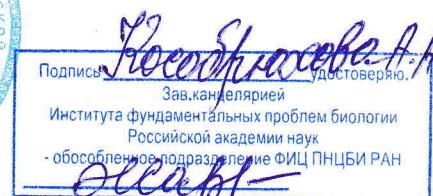 Подпись Кособрюхова А.А удостоверяю.
Зав.канцелярией
Института фундаментальных проблем биологии
Российской академии наук
- обособленное подразделение ФИЦ ПНЦБИ РАН